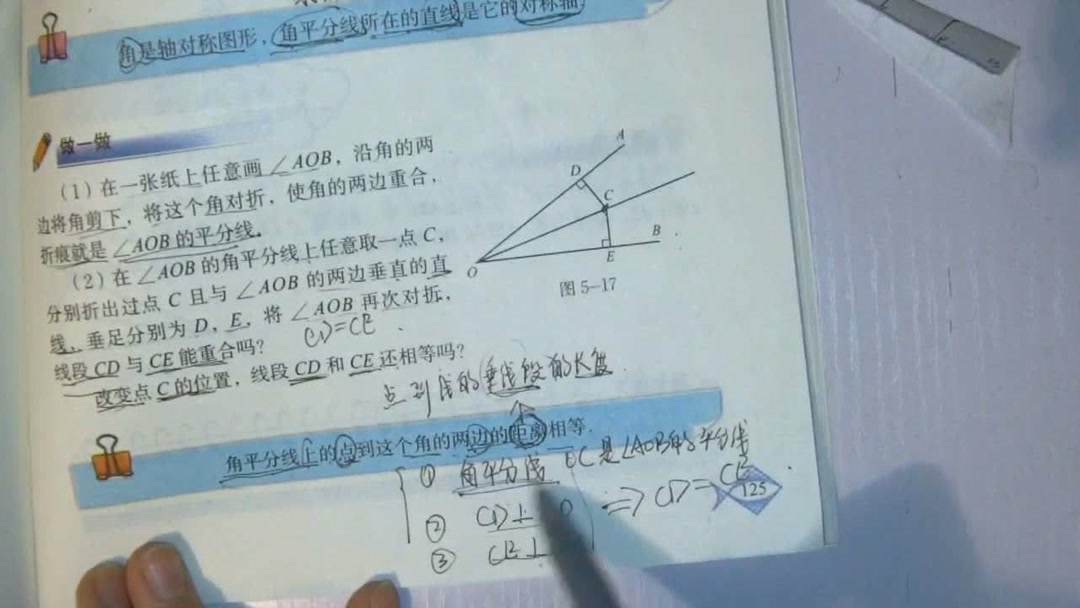 角是轴对称图形，角平分线所在的直线是它的对称轴
做一做
（1）在一张纸上任意画∠AOB，沿角的两
边将角剪下，将这个角对折，使角的两边重合，
折痕就是∠AOB的平分线.
（2）在∠AOB的角平分线上任意取一点C，
分别折出过点C且与∠AOB的两边垂直的直
线，垂足分别为D，E，将∠AOB再次对折，
线段CD与CE能重合吗？
CD=CE
改变点C的位置，线段CD和CE还相等吗？
A
D
C
B
O
E
图5-17
点到线的垂线段的长度
角平分线上的点到这个角的两边的距离相等.
① 角平分线 OC是∠AOB的平分线
② CD⊥
③ CE⊥
⇒ CD=CE
125